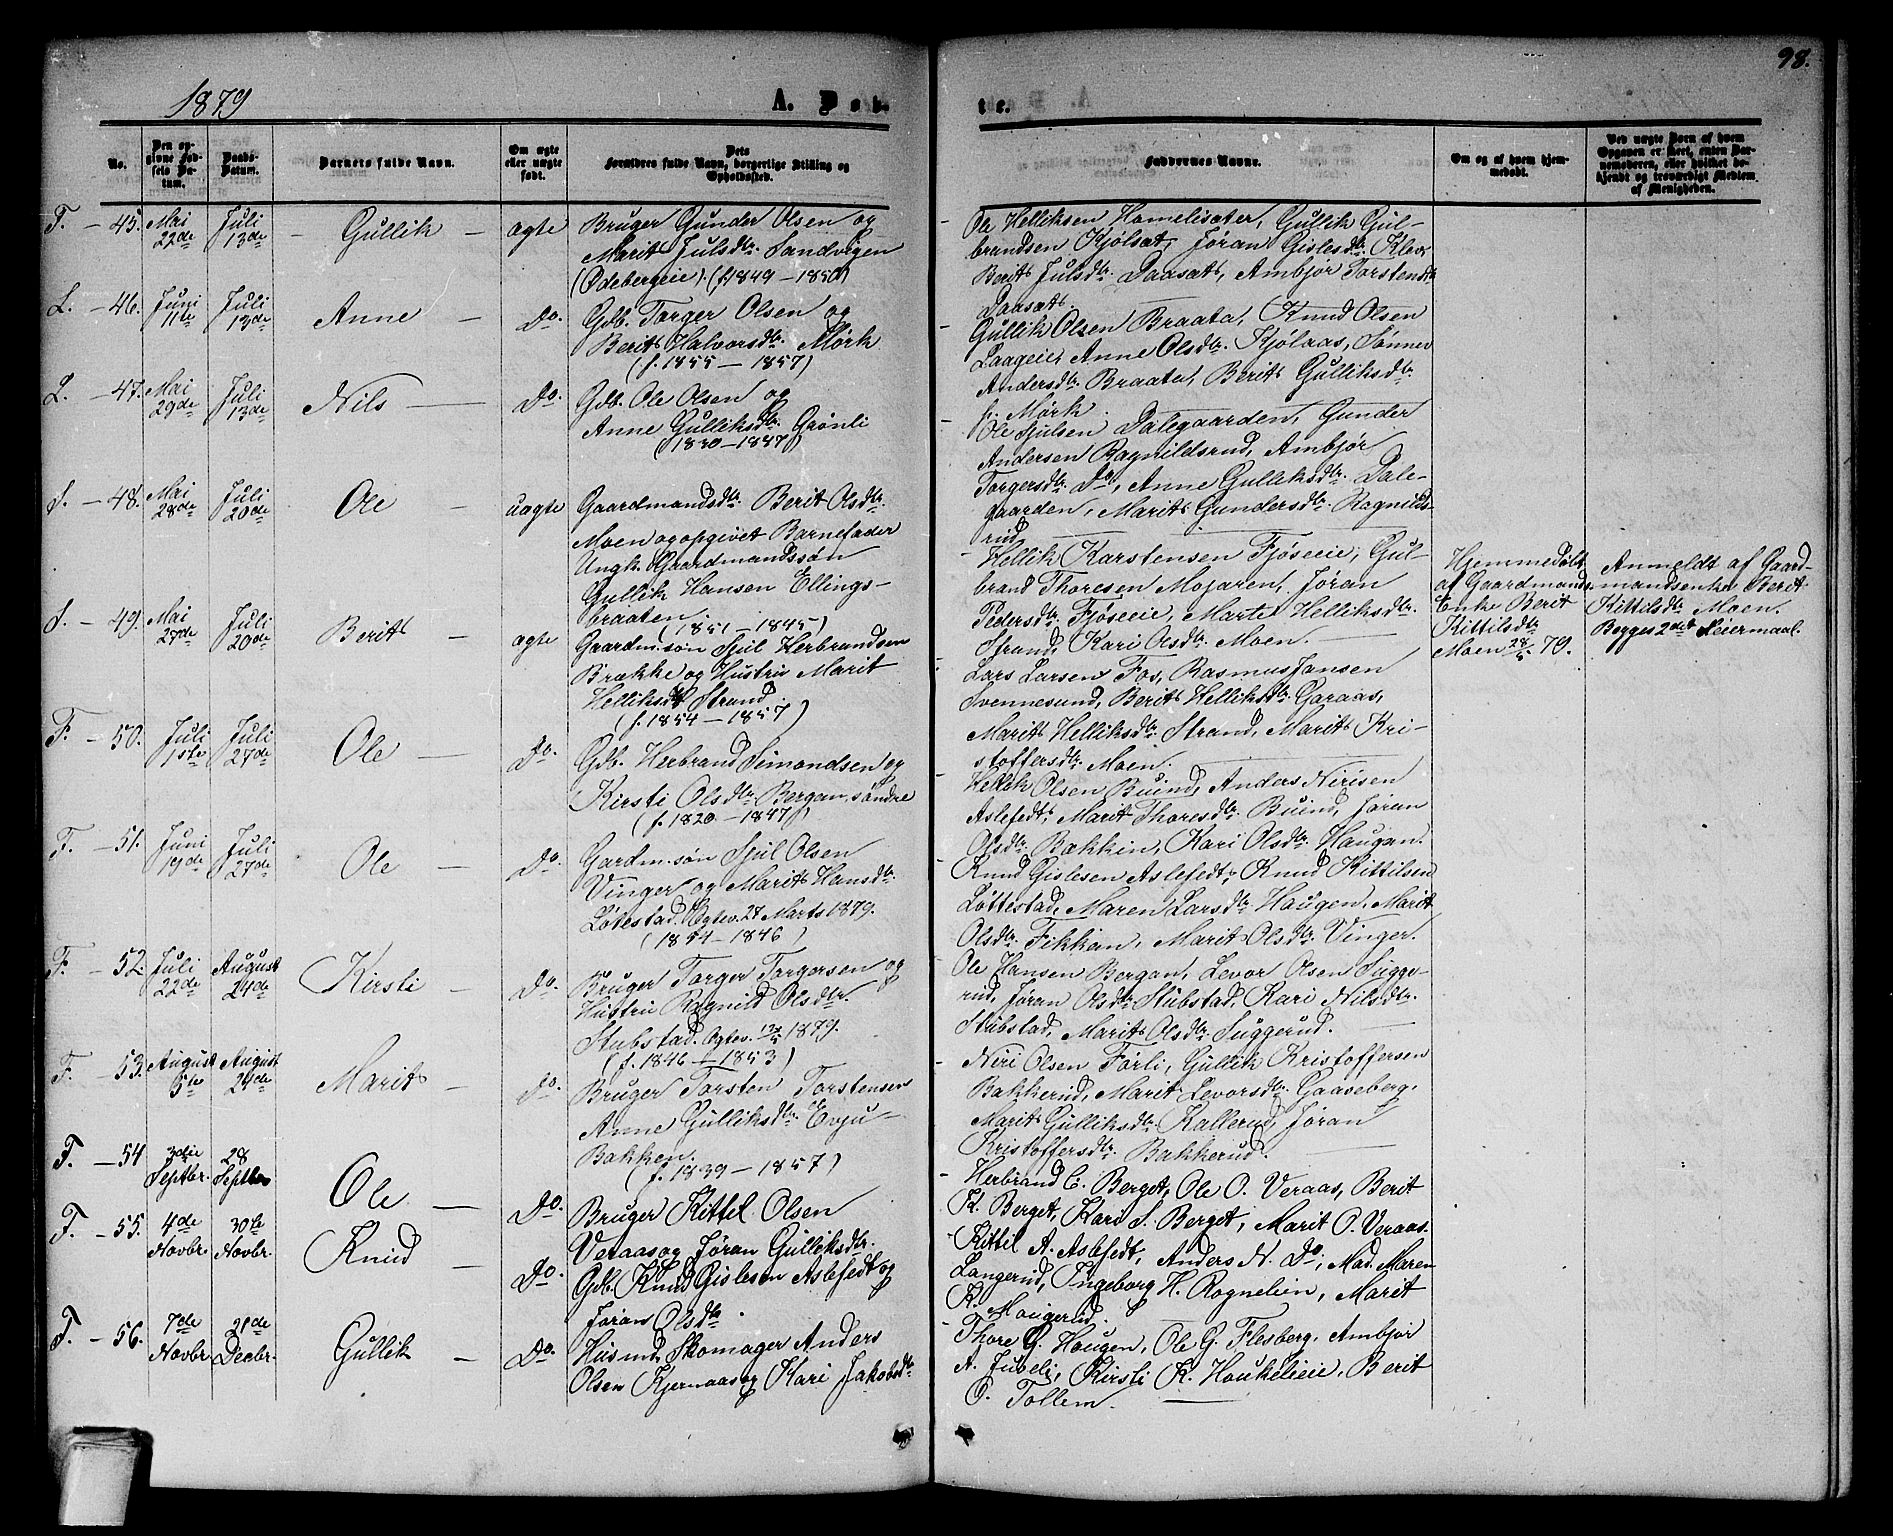 1879
A. Døbte.
98.
No.
Den opgivne Fødsels Datum.
Daabs-Datum.
Barnets fulde Navn.
Om ægte eller uægte født.
Dets Forældres fulde Navn, borgerlige Stilling og Opholdssted.
Faddernes Navne.
Om og af hvem hjemmedøbt.
Ved uægte Børn af hvem Opgaven er skeet, enten Barnemoderen, eller hvilket bekjendt og troværdigt Medlem af Menigheden.
F. — 45. Mai 22de Juli 13de — Gullik — ægte
Bruger Gunder Olsen og
Marit Julsdtr. Sandvigen
(Ødebergeie). (f. 1849 — 1850)
Ole Helliksen Hamelisæter, Gullik Gul-
brandsen Kjølsæt, Jøran Gislesdtr. Klev,
Berit Julsdtr. Daasæt, Ambjør Torstendtr.
Daasæt.
L. — 46. Juni 11te Juli 13de Anne — Do.
Gdb. Torger Olsen og
Berit Halvorsdtr. Mørk
(f. 1855 — 1857)
Gullik Olsen Braata, Knud Olsen
Laageie, Anne Olsdtr. Kjølaas, Sønnev
Andersdtr. Braata, Berit Gulliksdtr.
Mørk.
L. — 47. Mai 29de Juli 13de Nils — Do.
Gdb. Ole Olsen og
Anne Gulliksdtr. Grønli
(1830 — 1847)
Ole Sjulsen Dalegaarden, Gunder
Andersen Ragnildsrud, Ambjør
Torgersdtr. Do, Anne Gulliksdtr. Dale-
gaarden, Marit Gundersdtr. Ragnilds-
rud.
S. — 48. Mai 28de Juli 20de Ole — uægte
Gaardmandsdtr. Berit Olsdtr.
Moen og opgivet Barnefader
Ungk. Gaardmandssøn
Gullik Hansen Ellings-
braaten. (1851 — 1845)
Hellik Karstensen Fjøseeie, Gul-
brand Thoresen Mojaren, Jøran
Pedersdtr. Fjøseeie, Marte Helliksdtr.
Strand, Kari Olsdtr. Moen.
Hjemmedøbt
af Gaardmands
Enke Berit
Kittilsdtr
Moen 28/5 79.
Anmeldt af Gaard-
mandsenke Berit
Kittilsdtr Moen.
Begges 2det Leiermaal.
S. — 49. Mai 27de Juli 20de Berit — ægte
Gaardm.søn Sjul Herbrandsen
Brække og Hustru Marit
Helliksdtr Strand.
(f. 1854 — 1857)
Lars Larsen Fos, Rasmus Jansen
Svennesund, Berit Helliksdtr. Garaas,
Marit Helliksdtr. Strand, Marit Kri-
stoffersdtr. Moen.
F. — 50. Juli 1ste Juli 27de Ole — Do.
Gdb. Herbrand Simondsen og
Kirsti Olsdtr. Bergan, søndre
(f. 1820 — 1847)
Hellik Olsen Buind, Anders Nirisen
Aslefedt, Marit Thoresdtr. Buind, Jøran
Olsdtr. Bakkin, Kari Olsdtr. Haugan.
F. — 51. Juni 19de Juli 27de Ole — Do.
Gardm.søn Sjul Olsen
Vinger og Marit Hansdtr.
Løtestad. Ægtev. 27 Marts 1879.
(1854 — 1846)
Knud Gislesen Aslefedt, Knud Kittilsen
Løttestad, Maren Larsdtr Haugen, Marit
Olsdtr. Fikkan, Marit Olsdtr. Vinger.
F. — 52. Juli 22de August 24de Kirsti — Do.
Bruger Torger Torgersen og
Hustru Ragnild Olsdtr.
Stubstad. Ægtev. 1879.
(f. 1846 — 1853)
Ole Hansen Bergan, Levor Olsen Sugge-
rud, Jøran Olsdtr Stubstad, Kari Nilsdtr.
Stubstad, Marit Olsdtr. Suggerud.
F. — 53. August 5te August 24de Marit — Do.
Bruger Torsten Torstensen
Anne Gulliksdtr. Evju-
Bakken.
(f. 1839 — 1857)
Niri Olsen Førli, Gullik Kristoffersen
Bakkerud, Marit Levorsdtr. Gaaseberg,
Marit Gulliksdtr. Kallerud, Jøran
Kristoffersdtr. Bakkerud.
F. — 54 3die Septbr. 28 Septbr Ole — Do.
Bruger Kittel Olsen
Veraas og Jøran Gulliksdtr.
Herbrand E. Berget, Ole O. Veraas, Berit
K. Berget, Kari S. Berget, Marit O. Veraas.
F. — 55. 4de Novbr. 30te Novbr. Knud — Do.
Gdb. Knud Gislesen Aslefedt og
Jøran Olsdtr.
Kittil A. Aslefedt, Anders N. Do, Mad. Maren
Langerud, Ingeborg H. Rognelien, Marit
K. Mougerud.
F. — 56. 7de Novbr. 21de Decbr. Gullik — Do.
Husmd. Skomager Anders
Olsen Kjernaas og Kari Jakobsdtr.
Thore G. Haugen, Ole G. Flesberg, Ambjør
A. Juveli, Kirsti K. Houkelieie, Berit
O. Tollem.